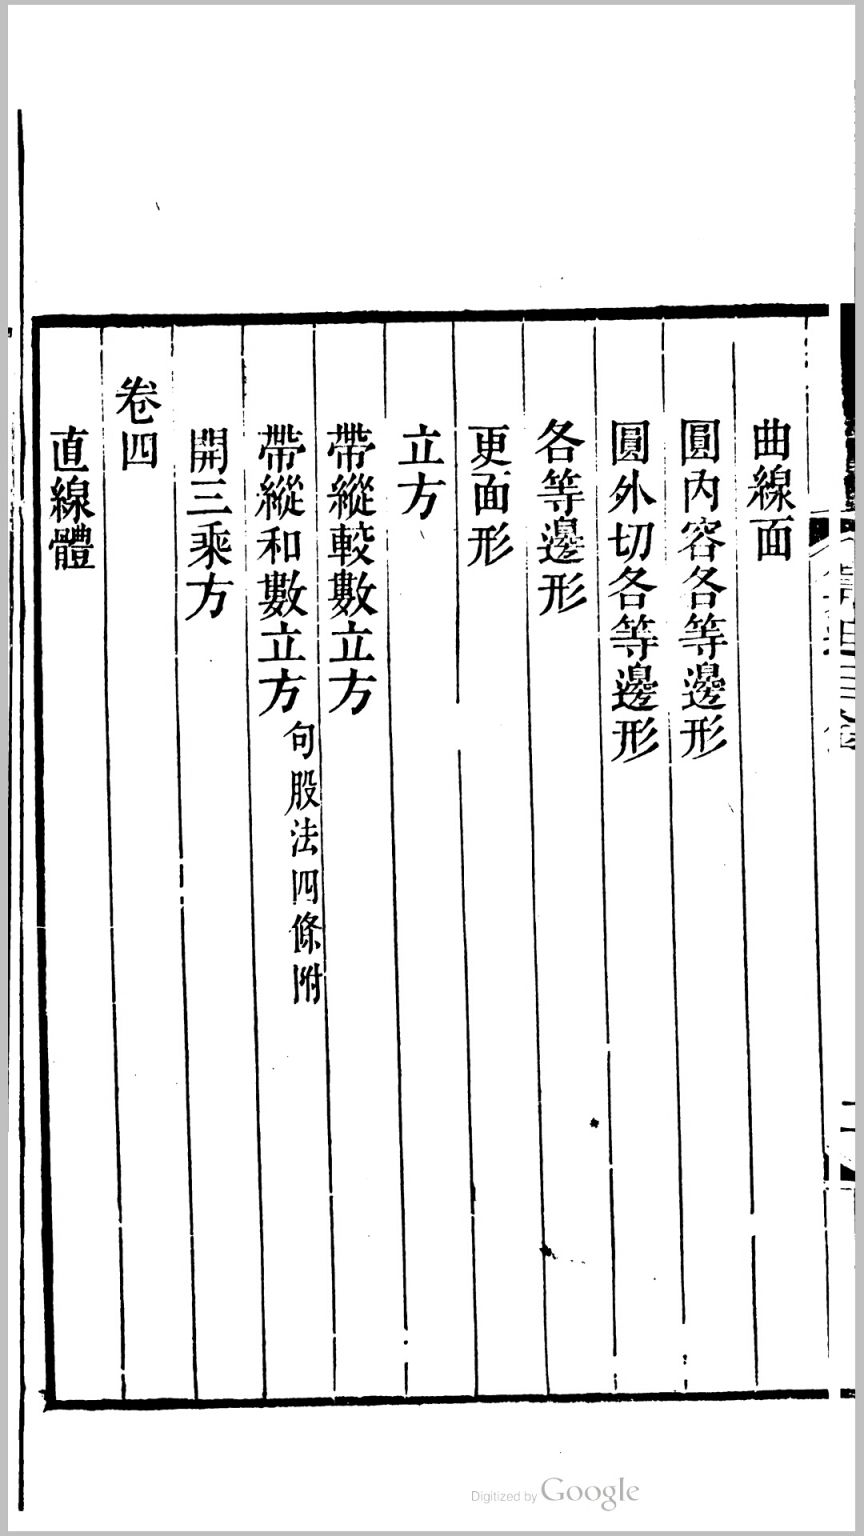 曲線面
圓內容各等邊形
圓外切各等邊形
各等邊形
更面形
立方
帶縱較數立方
帶縱和數立方
句股法四條附
開三乘方
卷四
直線體
Digitized by Google